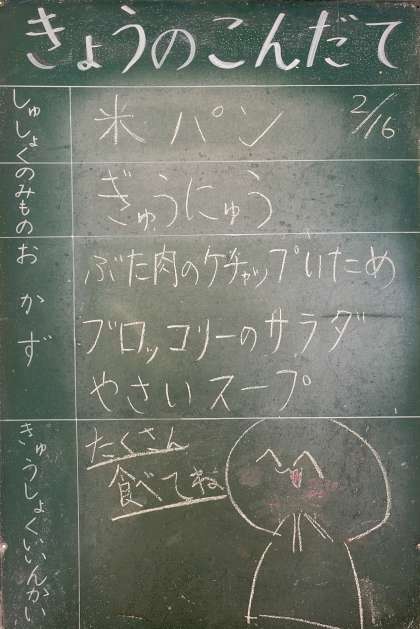 きょうのこんだて
しゅしょく
米パン
2/16
のみもの
ぎゅうにゅう
おかず
ぶた肉のケチャップいため
ブロッコリーのサラダ
やさいスープ
きゅうしょくいいんかい
たくさん
食べてね